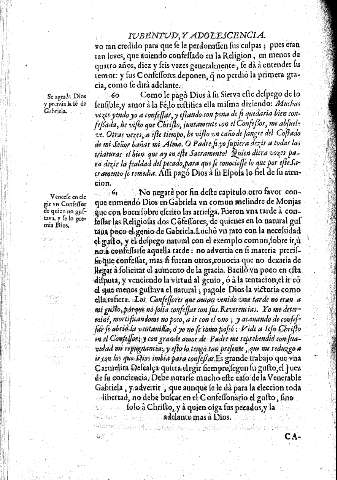 IUBENTUD, Y ADOLESCENCIA.
vo tan credido para que se le perdonassen sus culpas; pues eran
tan leves, que aviendo confessado en la Religion, en menos de
quatro años, diez y seis vezes generalmente, se dà à entender su
temor: y sus Confessores deponen, q̃ no perdiò la primera gra-
cia, como se dirà adelante.
60 Como le pagò Dios à su Sierva este despego de lo
Se agrada Dios
y premia la fé de
Gabriela.
sensible, y amor à la Fè, lo testifica ella misma diziendo: Muchas
vezes yendo yo a confessar, y estando con pena de si quedaria bien con-
fessada, he visto que Christo, juntamente con el Confessor, me absuel-
ve. Otras vezes, a este tiempo, he visto un caño de sangre del Costado
de mi Señor bañar mi Alma. O Padre, si yo supiera dezir a todas las
criaturas el bien que ay en este Sacramento! Quien diera vozes pa-
ra dezir la fealdad del pecado, para que se conociesse lo que por este Sa-
cramento se remedia. Assi pagò Dios à su Esposa lo fiel de su aten-
cion.
61 No negarè por fin deste capitulo otro favor con-
Vencese en ele-
gir un Confessor
de quien no gus-
tava, y se lo pre-
mia Dios.
que enmendò Dios en Gabriela un comun melindre de Monjas
que con buen sobreescrito las atriega. Fueron una tarde à con-
fessar las Religiosas dos Cõfessores, de quienes un natural gus-
tava poco el genio de Gabriela. Luchò un rato con la necessidad
el gusto, y el despego natural con el exemplo comun, sobre ir, ù
no à confessarse aquella tarde: no advertia en si materia preci-
se que confessar, mas si fueran otros, conocia que no dexaria de
llegar à solicitar el aumento de la gracia. Bacilò un poco en esta
disputa, y venciendo la virtud al genio, ò à la tentacion, el ir cõ
el que menos gustava el natural; pagole Dios la victoria como
ella refiere. Los Confessores que avian venido una tarde no eran a
mi gusto, porque no solia confessar con sus Reverencias. Yo me deter-
minè, mortificandome no poco, a ir con el uno; y acavando de confes-
sar se abriò la ventanilla, ò yo no sè como passò: Vide a Jesu Christo
en el Confessor; y con grande amor de Padre me reprehendiò con sua-
vidad mi repugnancia; y esto lo tengo tan presente, que me reduzgo a
ir con los que Dios imbia para confessar. Es grande trabajo que una
Carmelita Descalça quiera elegir siempre, segun su gusto, el Juez
de su conciencia. Debe notarse mucho este caso de la Venerable
Gabriela, y advertir, que aunque se le dà para la eleccion toda
libertad, no debe buscar en el Confessonario el gusto, sino
solo à Christo, y à quien oiga sus pecados, y la
adelante mas à Dios.
CA-